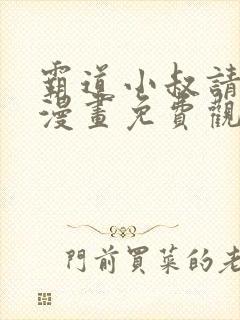 霸道小叔請
漫畫免費觀
門前買菜的老